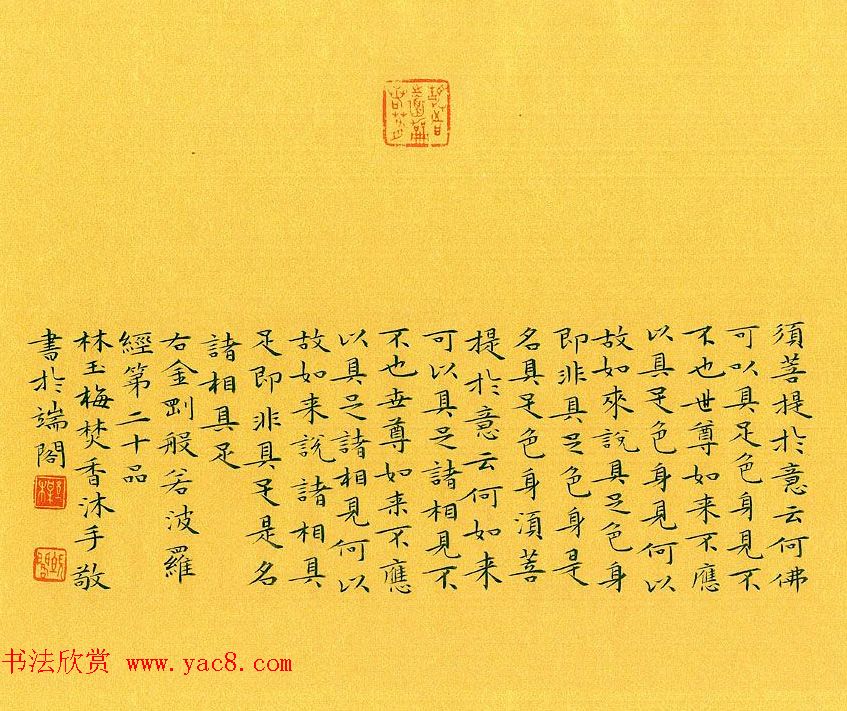 須菩提於意云何佛
可以具足色身見不
不也世尊如来不應
以具足色身見何以
故如來說具足色身
即非具足色身是
名具足色身須菩
提於意云何如来
可以具足諸相見不
不也世尊如来不應
以具足諸相見何以
故如来說諸相具
足即非具足是名
諸相具足
右金剛般若波羅
經第二十品
林玉梅焚香沐手敬
書於端閣
书法欣赏 www.yac8.com